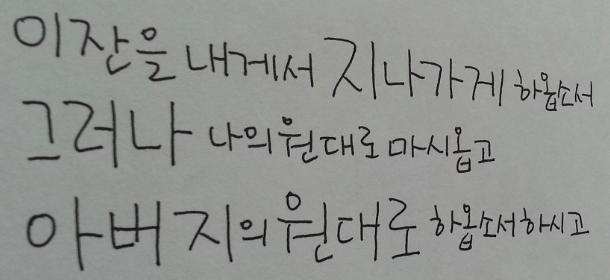 이 잔을 내게서 지나가게 하옵소서
그러나 나의 원대로 마시옵고
아버지의 원대로 하옵소서 하시고